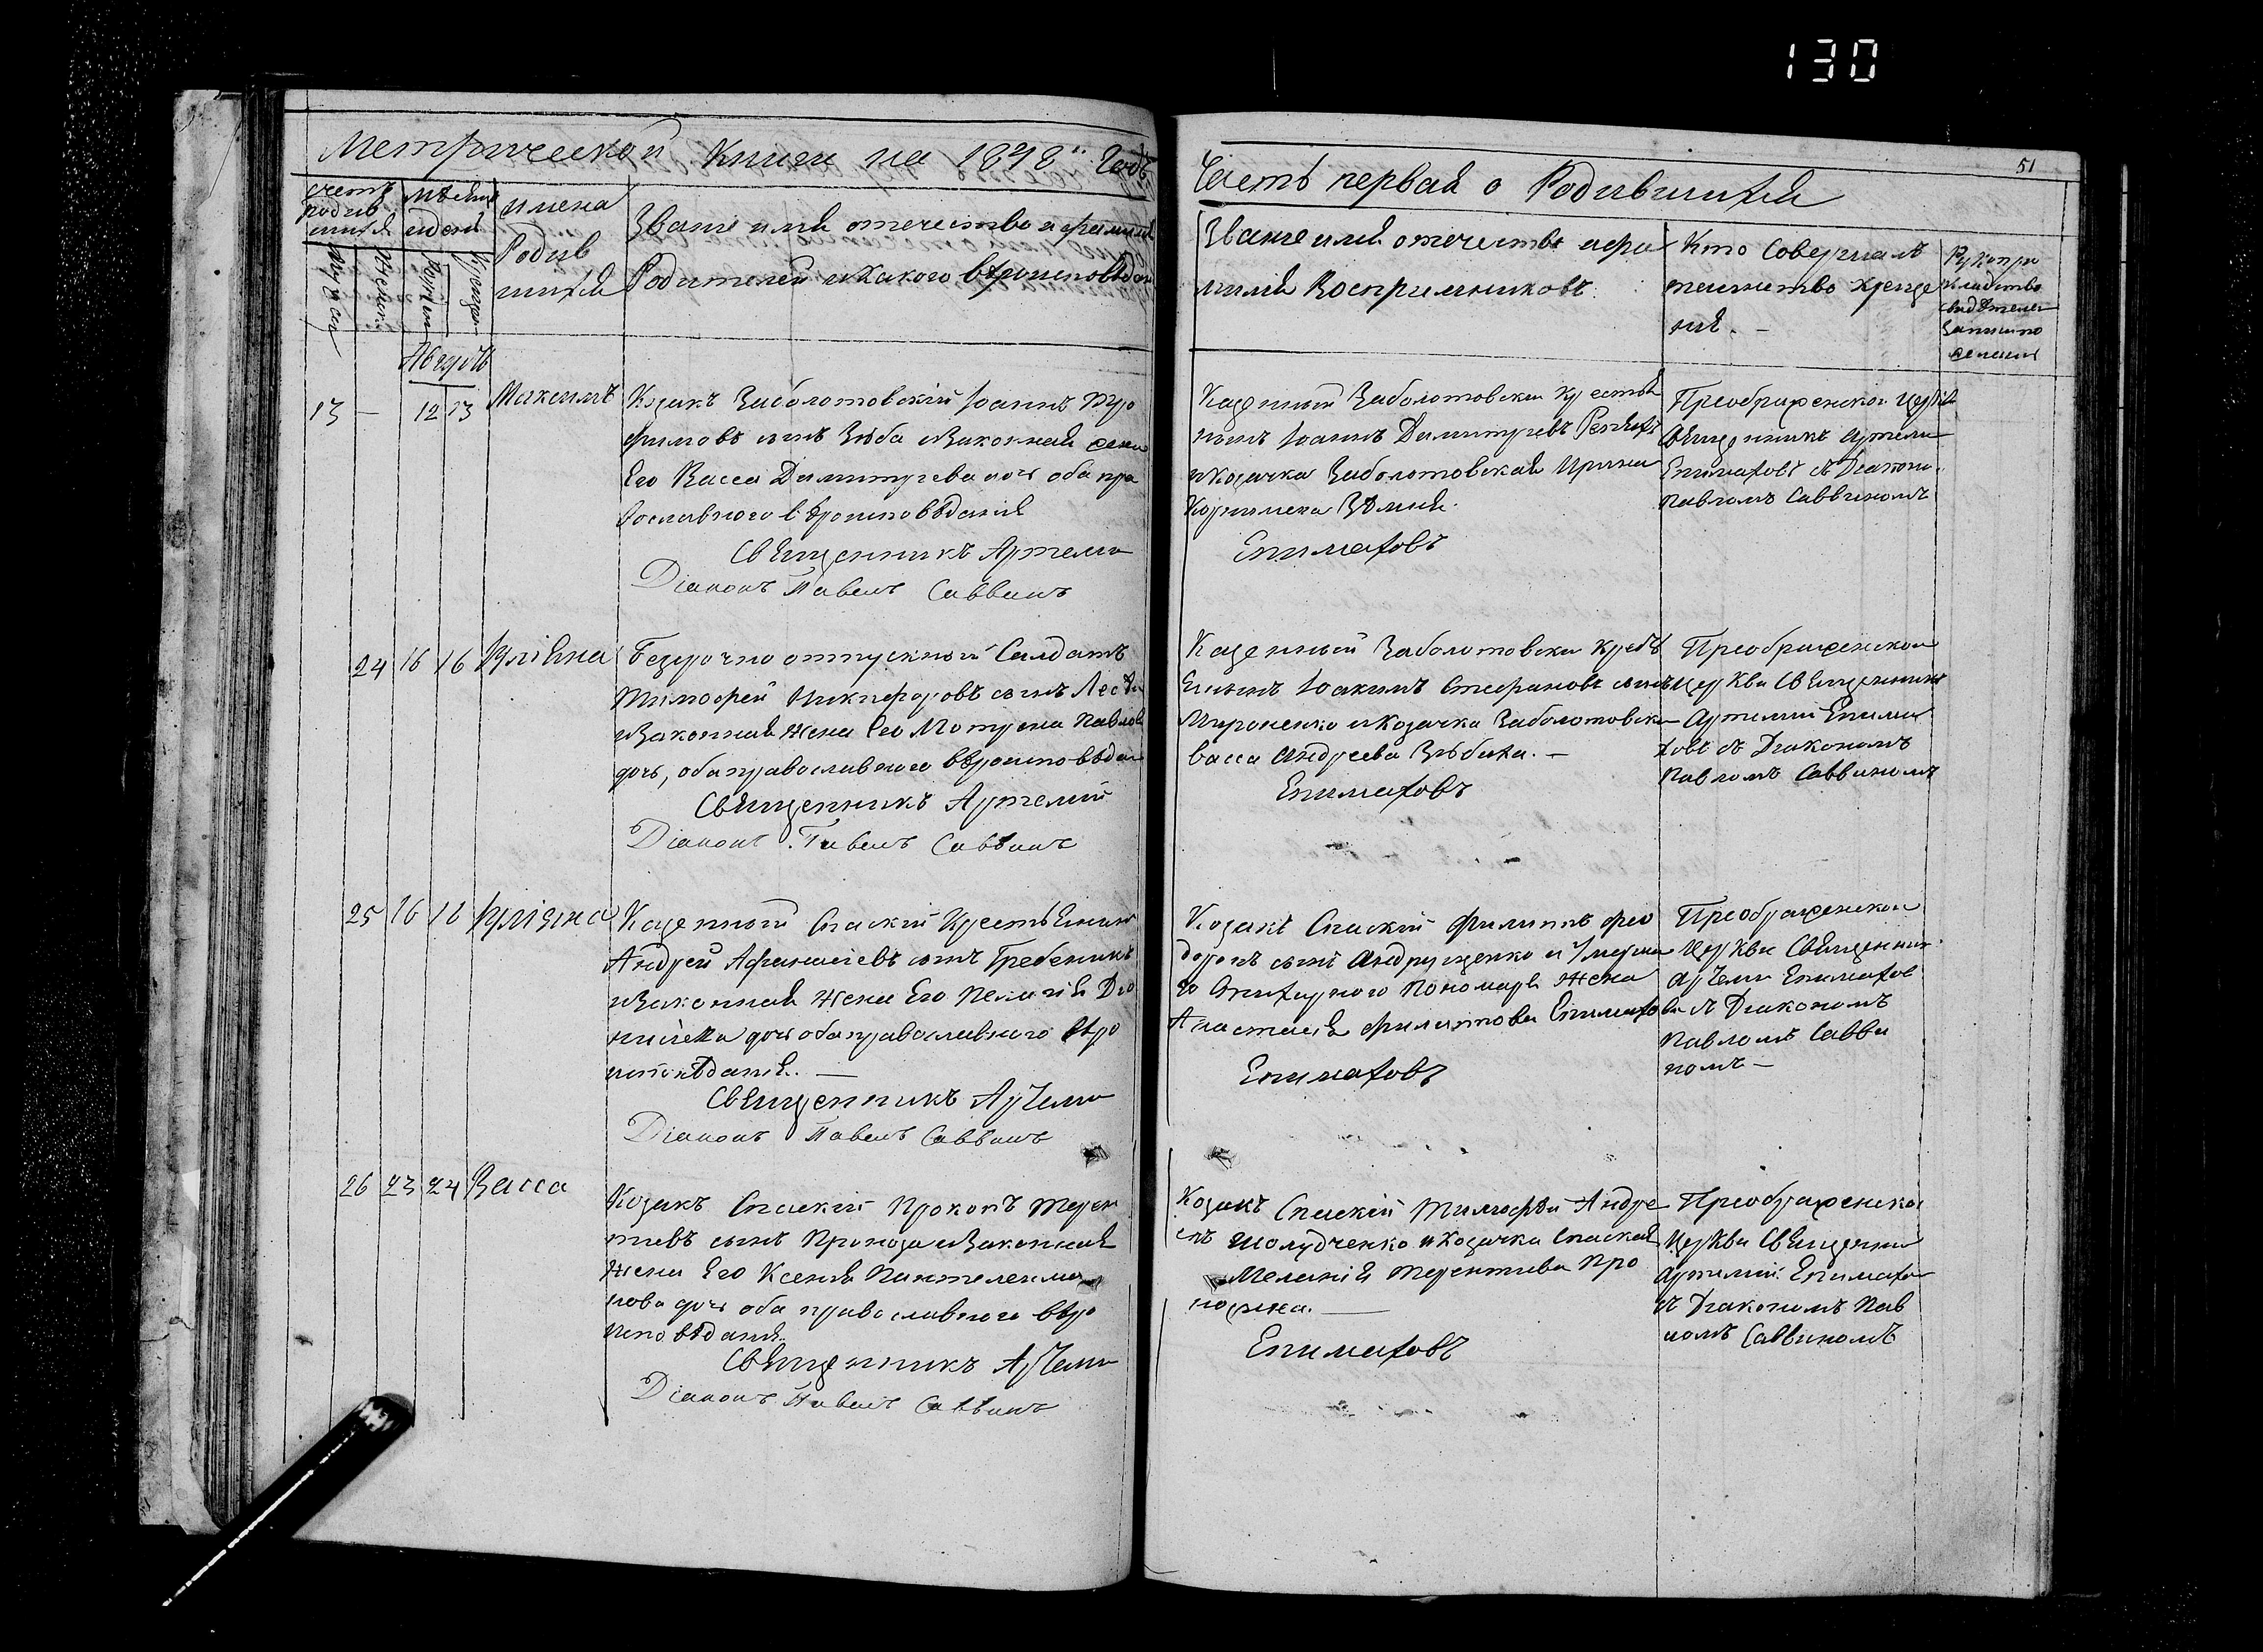 130
51
Метрической Книги на 1848й Годъ
Часть первая о Родившихся
счетъ
родив
шихся
мѣсяцъ
и дни
имена
Родив
шихся
Званіе имя отечество и фамилія
Родителей и какого вѣроисповѣдан
Званіе имя отечество и фа
милія Воспріемниковъ
Кто Совершалъ
таинство креще
нія. –
Рукопри
кладство
свидѣтелей
записи по
желанію
Августъ
13 – 12 13 Максимъ
Козакъ Заболотовскій Іоаннъ Тро
фимовъ сынъ Зюба и Законная жена
Его Васса Димитріева дочь оба пра
вославного вѣроисповѣданія
Священникъ Артеми
Діаконъ Павелъ Саввинъ
Казенный Заболотовски крестья
нинъ Іоаннъ Димитріевъ
и Козачка Заболотовская Ирина
Епимаховъ
Преображенской церкви
Священникъ Артеми
Епимаховъ съ Діакономъ
Павломъ Саввиномъ
24 16 16 Іуліяна
Безсрочно отпускной Салдатъ
Тимофей Никифоровъ сынъ
и Законная жена Его Мотрона Павлова
дочь, оба православного вѣроисповѣдан
Священникъ Артемій
Діаконъ Павелъ Саввинъ
Казенный Заболотовски крестъ
янинъ Іоакимъ Стефановъ сынъ
Мироненко и Козачка Заболотовска
Васса Андреева Зюбиха. –
Епимаховъ
Преображенской
церкви Священникъ
Артемий Епима
ховъ съ Діакономъ
Павломъ Саввиномъ
25 16 18 Іуліяна
Казенный Спаский Крестьянинъ
Андрей Афанасіевъ сынъ Гребеникъ
и Законная жена Его Пелагія Діо
нисіева дочь оба православного вѣро
исповѣданія. –
Священникъ Артеми
Діаконъ Павелъ Саввинъ
Козакъ Спаский Филиппъ Фео
доровъ сынъ Андрущенко и Умерша
го Пономаря Жена
Анастасія Филиппова Епимахо
Епимаховъ
Преображенской
церкви Священник
Артеми Епимахов
съ Діакономъ
Павломъ Савви
номъ –
26 23 24 Васса
Козакъ Спаскій Прокопъ Терен
тіевъ сынъ Проноза и Законная
жена Его Ксенія Пантелеимо
нова дочь оба православного вѣро
исповѣданія.
Священникъ Артеми
Діаконъ Павелъ Саввинъ
Козакъ Спаскій Тимофѣй Андре
евъ Шолудченко и Козачка Спаская
Меланія Терентіева Про
Епимаховъ
Преображенской
церкви Священни
Артемий Епимахо
съ Діакономъ Пав
ломъ Саввиномъ